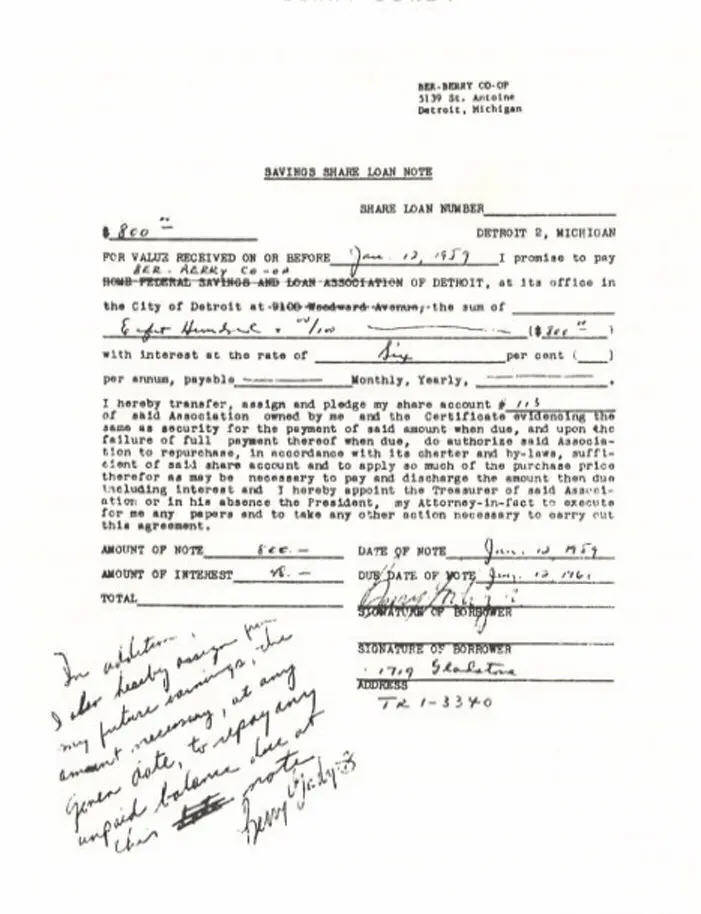 BER-BERRY CO-OP
5139 St. Antoine
Detroit, Michigan
SAVINGS SHARE LOAN NOTE
SHARE LOAN NUMBER
$ 800 00
DETROIT 2, MICHIGAN
FOR VALUE RECEIVED ON OR BEFORE Jan. 12, 1959 I promise to pay
BER-BERRY CO-OP
HOME FEDERAL SAVINGS AND LOAN ASSOCIATION OF DETROIT, at its office in
the City of Detroit at 9100 Woodward Avenue, the sum of
Eight Hundred & 00/100 ($ 800 00)
with interest at the rate of Six per cent ( )
per annum, payable Monthly, Yearly, .
I hereby transfer, assign and pledge my share account # 113
of said Association owned by me and the Certificate evidencing the
same as security for the payment of said amount when due, and upon the
failure of full payment thereof when due, do authorize said Associa-
tion to repurchase, in accordance with its charter and by-laws, suffi-
cient of said share account and to apply so much of the purchase price
therefor as may be necessary to pay and discharge the amount then due
including interest and I hereby appoint the Treasurer of said Associ-
ation or in his absence the President, my Attorney-in-fact to execute
for me any papers and to take any other action necessary to carry out
this agreement.
AMOUNT OF NOTE 800. —
DATE OF NOTE Jan. 12 1959
AMOUNT OF INTEREST 48. —
DUE DATE OF NOTE Jan. 12, 1960
TOTAL
SIGNATURE OF BORROWER
SIGNATURE OF BORROWER
1719 Gladstone
ADDRESS
TR 1-3340
In addition,
I also hereby assign from
my future earnings, the
amount necessary, at any
given date, to repay any
unpaid balance due at
this note
Berry Gordy Jr